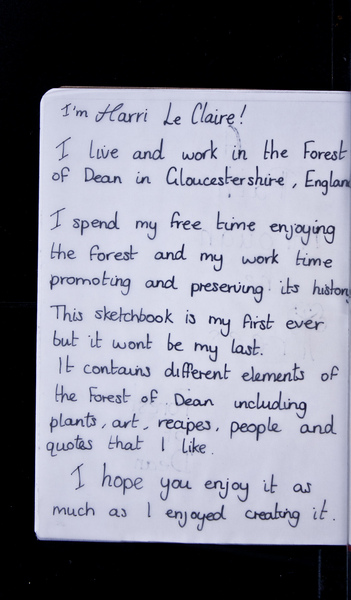 I'm Harri Le Claire!
I live and work in the Forest
of Dean in Gloucestershire, Englan
I spend my free time enjoying
the forest and my work time
promoting and preserving its history
This sketchbook is my first ever
but it wont be my last.
It contains different elements of
the Forest of Dean including
plants, art, recipes, people and
quotes that I like.
I hope you enjoy it as
much as I enjoyed creating it.